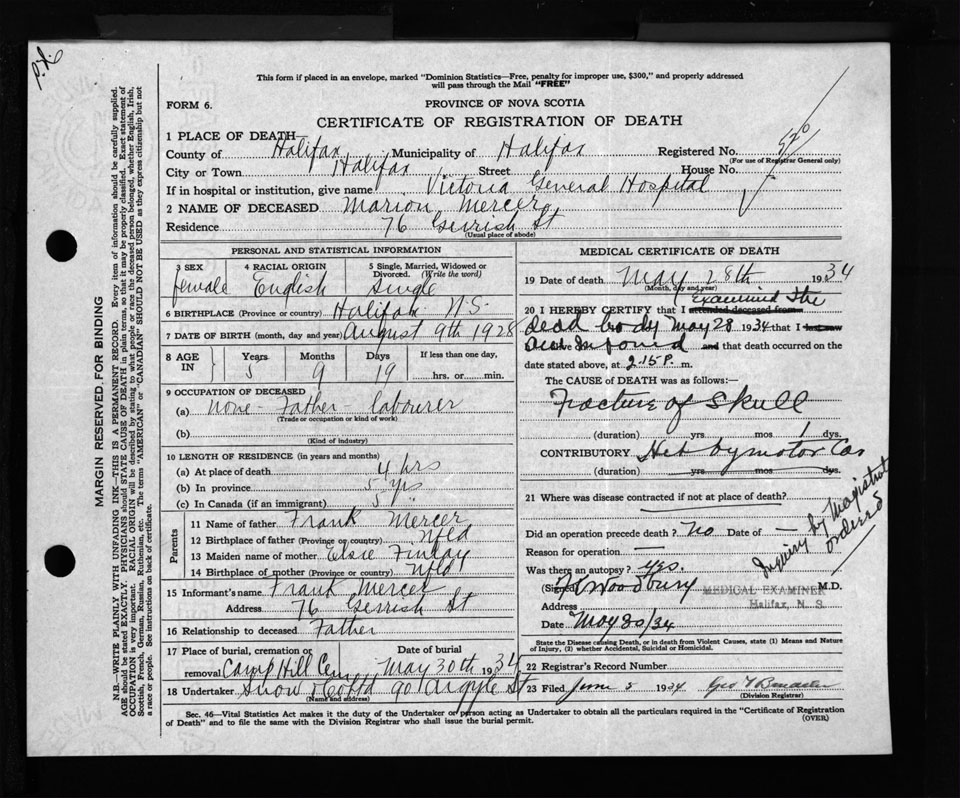 P.X.
This form if placed in an envelope, marked "Dominion Statistics—Free, penalty for improper use, $300," and properly addressed
will pass through the Mail "FREE"
FORM 6.
PROVINCE OF NOVA SCOTIA
CERTIFICATE OF REGISTRATION OF DEATH
1 PLACE OF DEATH
County of Halifax Municipality of Halifax Registered No. 520
(For use of Registrar General only)
City or Town Halifax Street House No.
If in hospital or institution, give name Victoria General Hospital
2 NAME OF DECEASED Marion Mercer
Residence 76 Gerrish St
(Usual place of abode)
PERSONAL AND STATISTICAL INFORMATION
3 SEX 4 RACIAL ORIGIN 5 Single, Married, Widowed or Divorced. (Write the word)
female English Single
6 BIRTHPLACE (Province or country) Halifax N S
7 DATE OF BIRTH (month, day and year) August 9th 1928
8 AGE IN Years Months Days If less than one day,
5 9 19 hrs. or min.
9 OCCUPATION OF DECEASED
(a) none - Father - labourer
(Trade or occupation or kind of work)
(b)
(Kind of industry)
10 LENGTH OF RESIDENCE (in years and months)
(a) At place of death 4 hrs
(b) In province 5 yrs
(c) In Canada (if an immigrant) 5 "
Parents
11 Name of father Frank Mercer
12 Birthplace of father (Province or country) Nfld
13 Maiden name of mother Elsie Finlay
14 Birthplace of mother (Province or country) Nfld
15 Informant's name Frank Mercer
Address 76 Gerrish St
16 Relationship to deceased Father
17 Place of burial, cremation or Date of burial
removal Camp Hill Cem May 30th 1934
18 Undertaker Snow & Co Ltd 90 Argyle St
(Name and address)
MEDICAL CERTIFICATE OF DEATH
19 Date of death May 28th 1934
(Month, day and year)
examined the
20 I HEREBY CERTIFY that I attended deceased from
dead body May 28 1934 that I last saw
and that death occurred on the
date stated above, at 2.15 P. m.
The CAUSE OF DEATH was as follows:
Fracture of Skull
(duration) yrs mos 1 dys.
CONTRIBUTORY Hit by motor Car
(duration) yrs mos dys.
21 Where was disease contracted if not at place of death?
Did an operation precede death? No Date of —
Reason for operation —
Was there an autopsy? yes.
(Signed) Woodbury MEDICAL EXAMINER M.D.
Address Halifax, N. S.
Date May 30/34
Inquiry by Magistrate
ordered
State the Disease causing Death, or in death from Violent Causes, state (1) Means and Nature
of Injury, (2) whether Accidental, Suicidal or Homicidal.
22 Registrar's Record Number
23 Filed June 5 1934
(Division Registrar)
Sec. 46—Vital Statistics Act makes it the duty of the Undertaker or person acting as Undertaker to obtain all the particulars required in the "Certificate of Registration
of Death" and to file the same with the Division Registrar who shall issue the burial permit.
(OVER)
MARGIN RESERVED FOR BINDING
N.B.—WRITE PLAINLY WITH UNFADING INK—THIS IS A PERMANENT RECORD. Every item of information should be carefully supplied.
AGE should be stated EXACTLY. PHYSICIANS should STATE CAUSE OF DEATH in plain terms, so that it may be properly classified. Exact statement of
OCCUPATION is very important. RACIAL ORIGIN will be described by stating to what people or race the deceased person belonged, whether English, Irish,
Scottish, French, German, Russian, Ruthenian, etc. The terms "AMERICAN" or "CANADIAN" SHOULD NOT BE USED as they express citizenship but not
a race or people. See instructions on back of certificate.